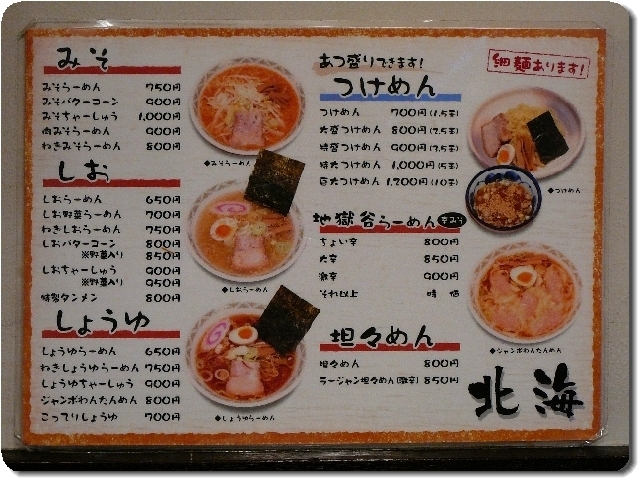 みそ
みそらーめん 750円
みそバターコーン 900円
みそちゃーしゅう 1,000円
肉みそらーめん 900円
ねぎみそらーめん 800円
◆みそらーめん
しお
しおらーめん 650円
しお野菜らーめん 700円
ねぎしおらーめん 750円
しおバターコーン 800円
※野菜入り 850円
しおちゃーしゅう 900円
※野菜入り 950円
特製タンメン 800円
◆しおらーめん
しょうゆ
しょうゆらーめん 650円
ねぎしょうゆらーめん 750円
しょうゆちゃーしゅう 900円
ジャンボわんたんめん 800円
こってりしょうゆ 700円
◆しょうゆらーめん
あつ盛りできます!
つけめん
細麺あります!
つけめん 700円(1.5玉)
大盛つけめん 800円(2.5玉)
特盛つけめん 900円(3.5玉)
特大つけめん 1,000円(5玉)
巨大つけめん 1,200円(10玉)
◆つけめん
地獄谷らーめん 辛みそ
ちょい辛 800円
大辛 850円
激辛 900円
それ以上 時価
◆ジャンボわんたんめん
坦々めん
坦々めん 800円
ラージャン坦々めん(激辛) 850円
北海